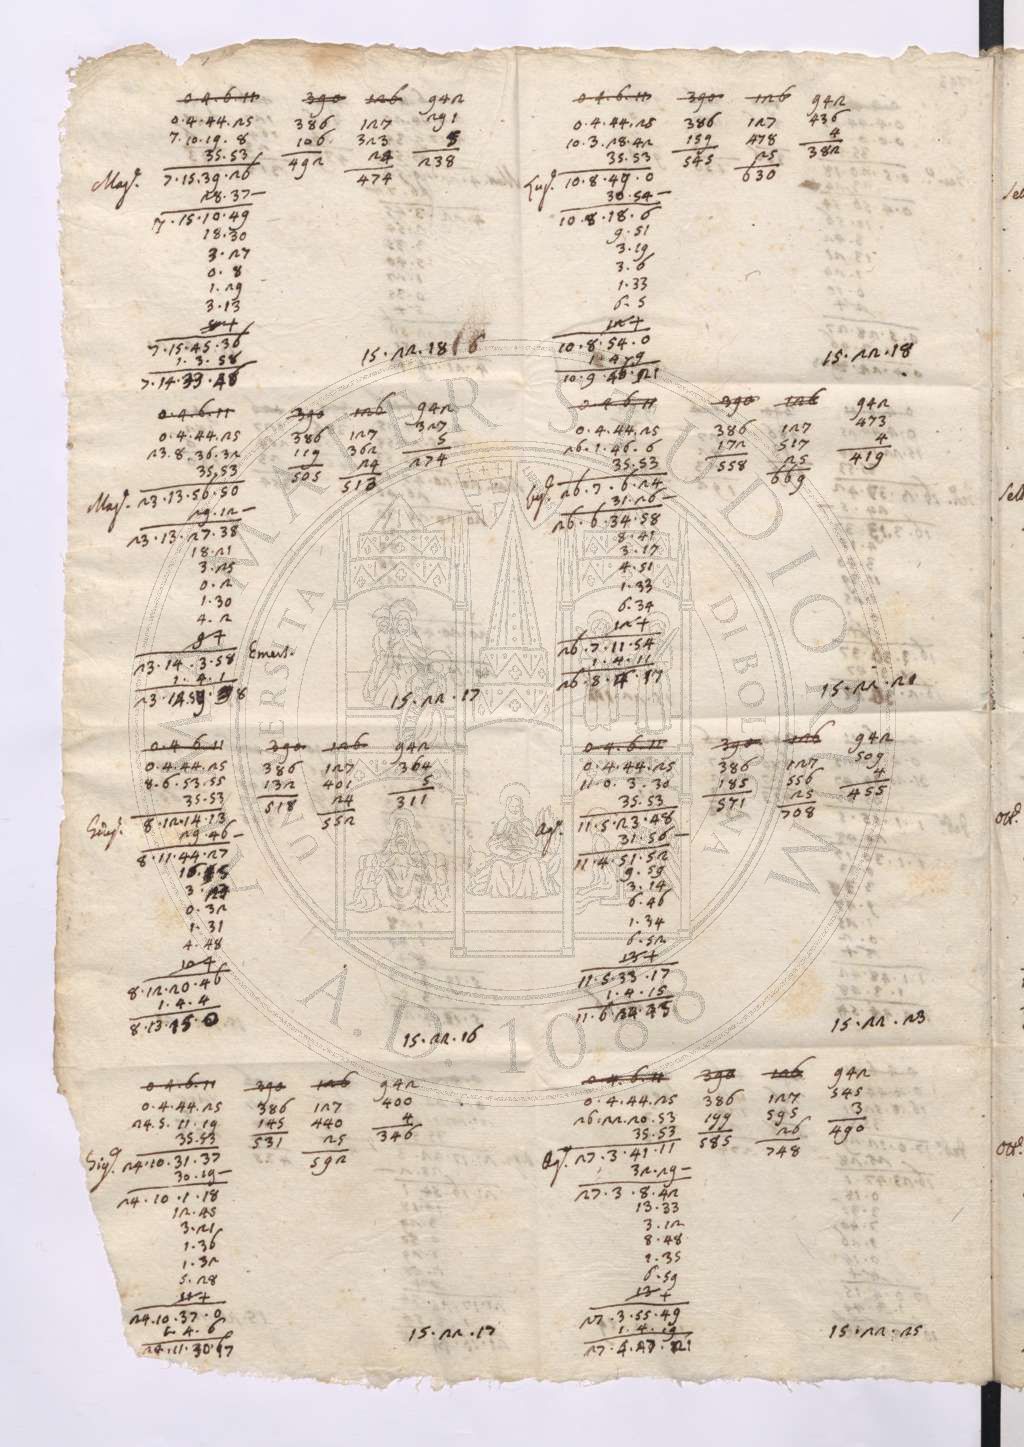 0.4.6.11 390 126 942
0.4.44.25 386 127 291
7.10.19.8 106 323 5
35.53 492 24 238
Mag. 7.15.39.26 474
28.37—
7.15.10.49
18.30
3.27
0.8
1.29
3.13
7.15.45.36
1.3.58
15.22.18
0.4.6.11 390 126 942
0.4.44.25 386 127 327
23.8.36.32 119 362 5
35.53 505 24 274
Mag. 23.13.56.50 513
29.12—
23.13.27.38
18.21
3.25
0.2
1.30
4.2
9+
23.14.3.58
1.4.1
15.22.17
0.4.6.11 390 126 942
0.4.44.25 386 127 364
8.6.53.55 132 401 5
35.53 518 24 311
Giug. 8.12.14.13 552
29.46—
8.11.44.27
0.32
1.31
4.48
10+
8.12.20.46
1.4.4
8.13.15.0
15.22.16
0.4.6.11 390 126 942
0.4.44.25 386 127 400
24.5.11.19 145 440 4
35.53 531 25 346
Giug. 24.10.31.37 592
30.19—
24.10.1.18
12.45
3.21
1.36
1.32
5.28
11+
24.10.37.0
24.11.30.17
15.22.17
0.4.6.11 390 126 942
0.4.44.25 386 127 436
10.3.28.42 159 478 4
35.53 545 25 382
Lug. 10.8.49.0 630
30.54—
10.8.18.6
9.51
3.19
3.6
1.33
6.5
12+
10.8.54.0
15.22.18
0.4.6.11 390 126 942
0.4.44.25 386 127 473
26.1.46.6 172 517 4
35.53 558 25 419
Lug. 26.7.6.24 669
31.26—
26.6.34.58
8.41
3.17
4.51
1.33
6.34
12+
26.7.11.54
1.4.11
26.8.14.17
0.4.6.11 390 126 942
0.4.44.25 386 127 509
11.0.3.30 185 556 4
35.53 571 25 455
Ag. 11.5.23.48 708
31.56—
11.4.51.52
9.59
3.14
6.46
1.34
6.52
13+
11.5.33.17
1.4.15
15.22.23
0.4.6.11 390 126 942
0.4.44.25 386 127 545
26.22.20.53 199 595 3
35.53 585 26 490
Ag. 27.3.41.11 748
32.29—
27.3.8.42
13.33
3.12
8.48
1.35
6.59
13+
27.3.55.49
1.4.19
15.22.25
ALMA MATER STUDIORUM
A.D. 1088